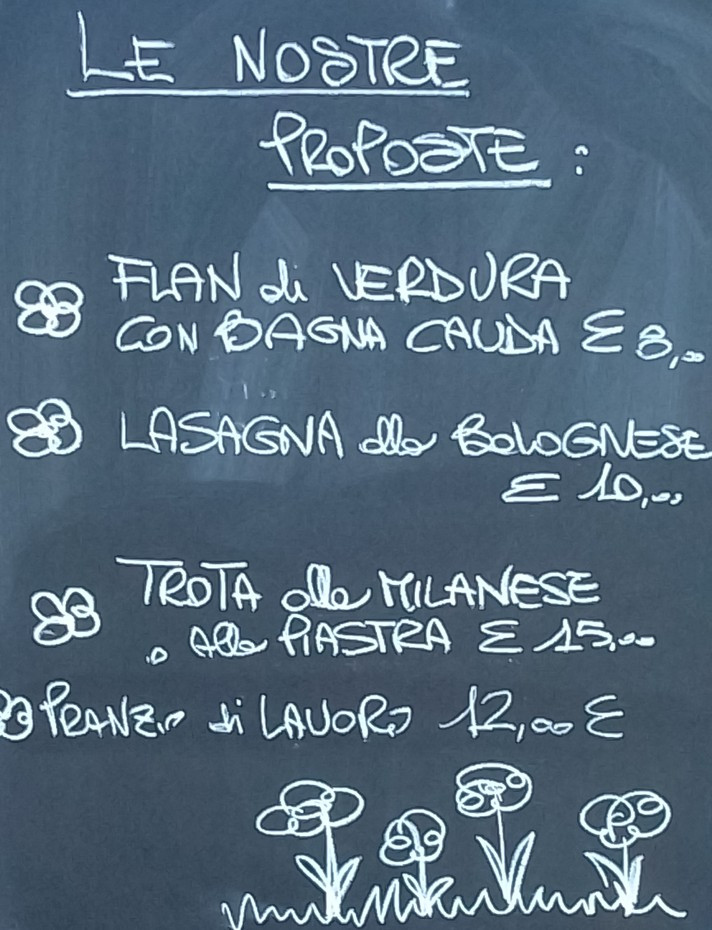 LE NOSTRE
PROPOSTE :
FLAN di VERDURA
CON BAGNA CAUDA € 8,00
LASAGNA alla BOLOGNESE
€ 10,00
TROTA alla MILANESE
o alla PIASTRA € 15,00
PRANZO di LAVORO 12,00 €